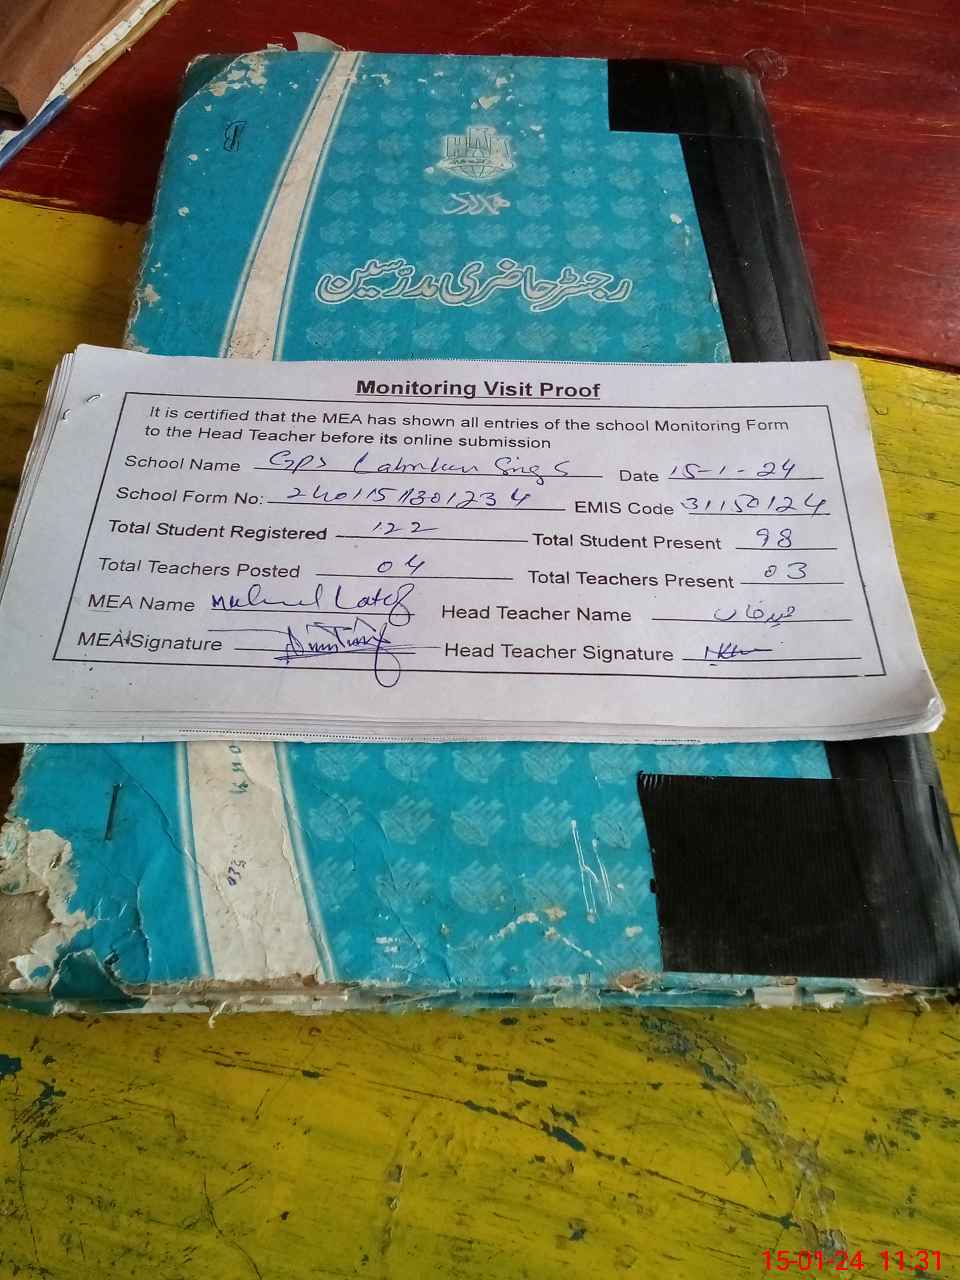 ہمدرد
رجسٹر حاضری مدرّسین
Monitoring Visit Proof
It is certified that the MEA has shown all entries of the school Monitoring Form
to the Head Teacher before its online submission
School Name GPS Sing S Date 15-1-24
School Form No: 2401151301234 EMIS Code 31150124
Total Student Registered 122 Total Student Present 98
Total Teachers Posted 04 Total Teachers Present 03
MEA Name Latif Head Teacher Name
MEA Signature Head Teacher Signature
15-01-24 11:31